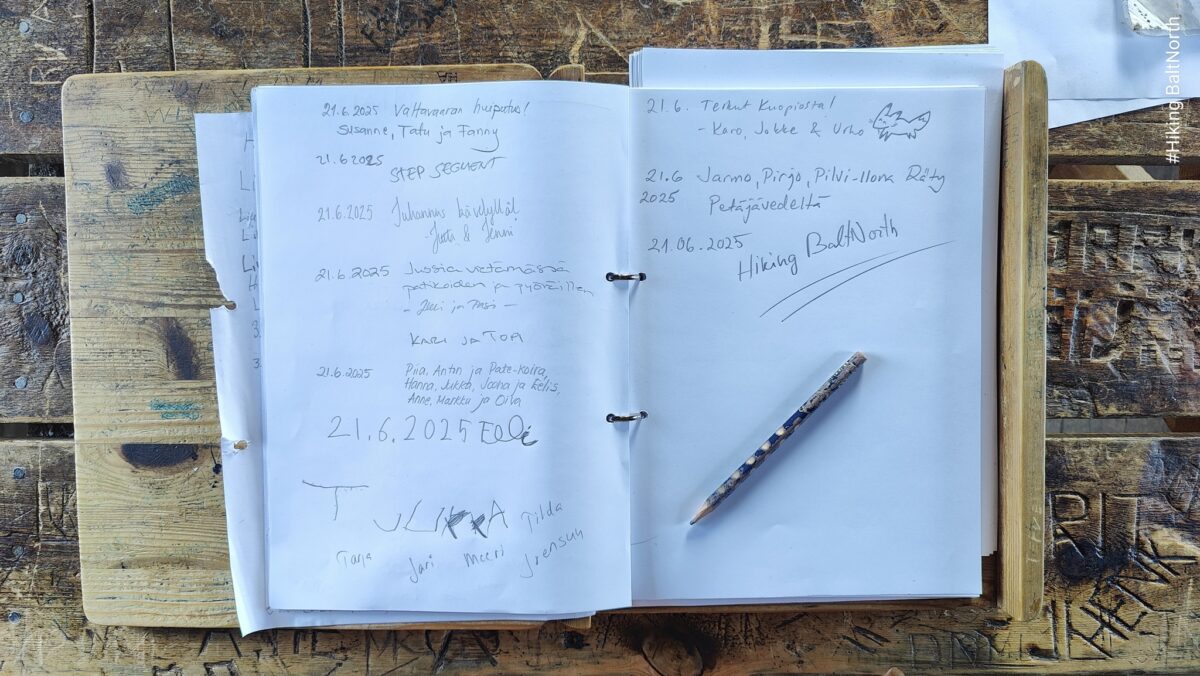 21.6.2025 Valtavaaran huiputus!
Susanne, Tatu ja Fanny
21.6.2025
STEP SEGMENT
21.6.2025 Juhannus kävelyllä!
Jutta & Jenni
21.6.2025 Jussia viettämässä
patikoiden ja pyöräillen
ja Pasi -
KARI JA TOA
21.6.2025 Piia, Antin ja Pate-koira,
Hanna, Jukka, Joona ja Eelis,
Anne, Markku ja Oiva
21.6.2025 Eeli
Tilda
Tarja Jari Meeri Joensuu
21.6. Terkut Kuopiosta!
- Karo, Jokke & Urho
21.6 Jarmo, Pirjo, Pilvi-Ilona Räty
2025 Petäjävedeltä
21.06.2025
Hiking BaltNorth
#Hiking BaltNorth